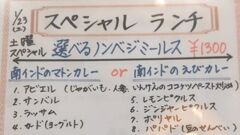 1/23
(土)
スペシャル ランチ
土曜
スペシャル 選べるノンベジミールス ¥1300
南インドのマトンカレー or 南インドのえびカレー
1. アビエル (じゃがいも、人参、いんげんのココナツペースト炒め)
2. サンバル
3. ラッサム
4. カード(ヨーグルト)
5. レモンピクルス
6. ジンジャーピクルス
7. ポリヤル
8. パパド (豆のせんべい)